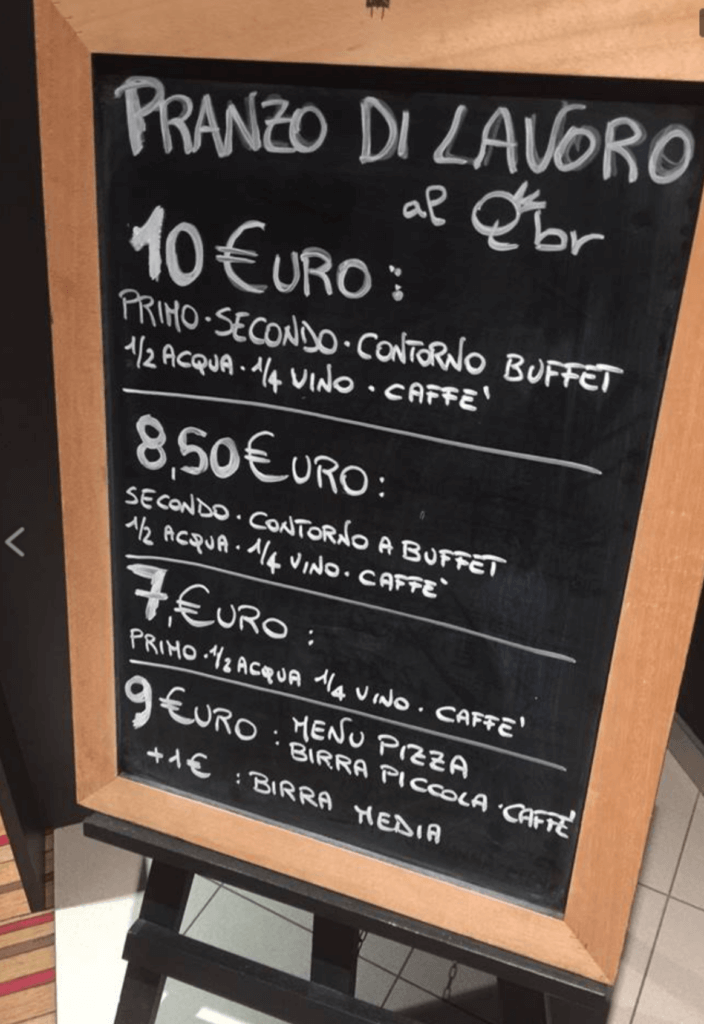 PRANZO DI LAVORO
al Q'br
10 €URO:
PRIMO · SECONDO · CONTORNO BUFFET
1/2 ACQUA · 1/4 VINO · CAFFE'
8,50 €URO:
SECONDO · CONTORNO A BUFFET
1/2 ACQUA · 1/4 VINO · CAFFE'
7,€URO:
PRIMO · 1/2 ACQUA 1/4 VINO · CAFFE'
9 €URO: MENU PIZZA
BIRRA PICCOLA · CAFFE'
+1€ : BIRRA MEDIA